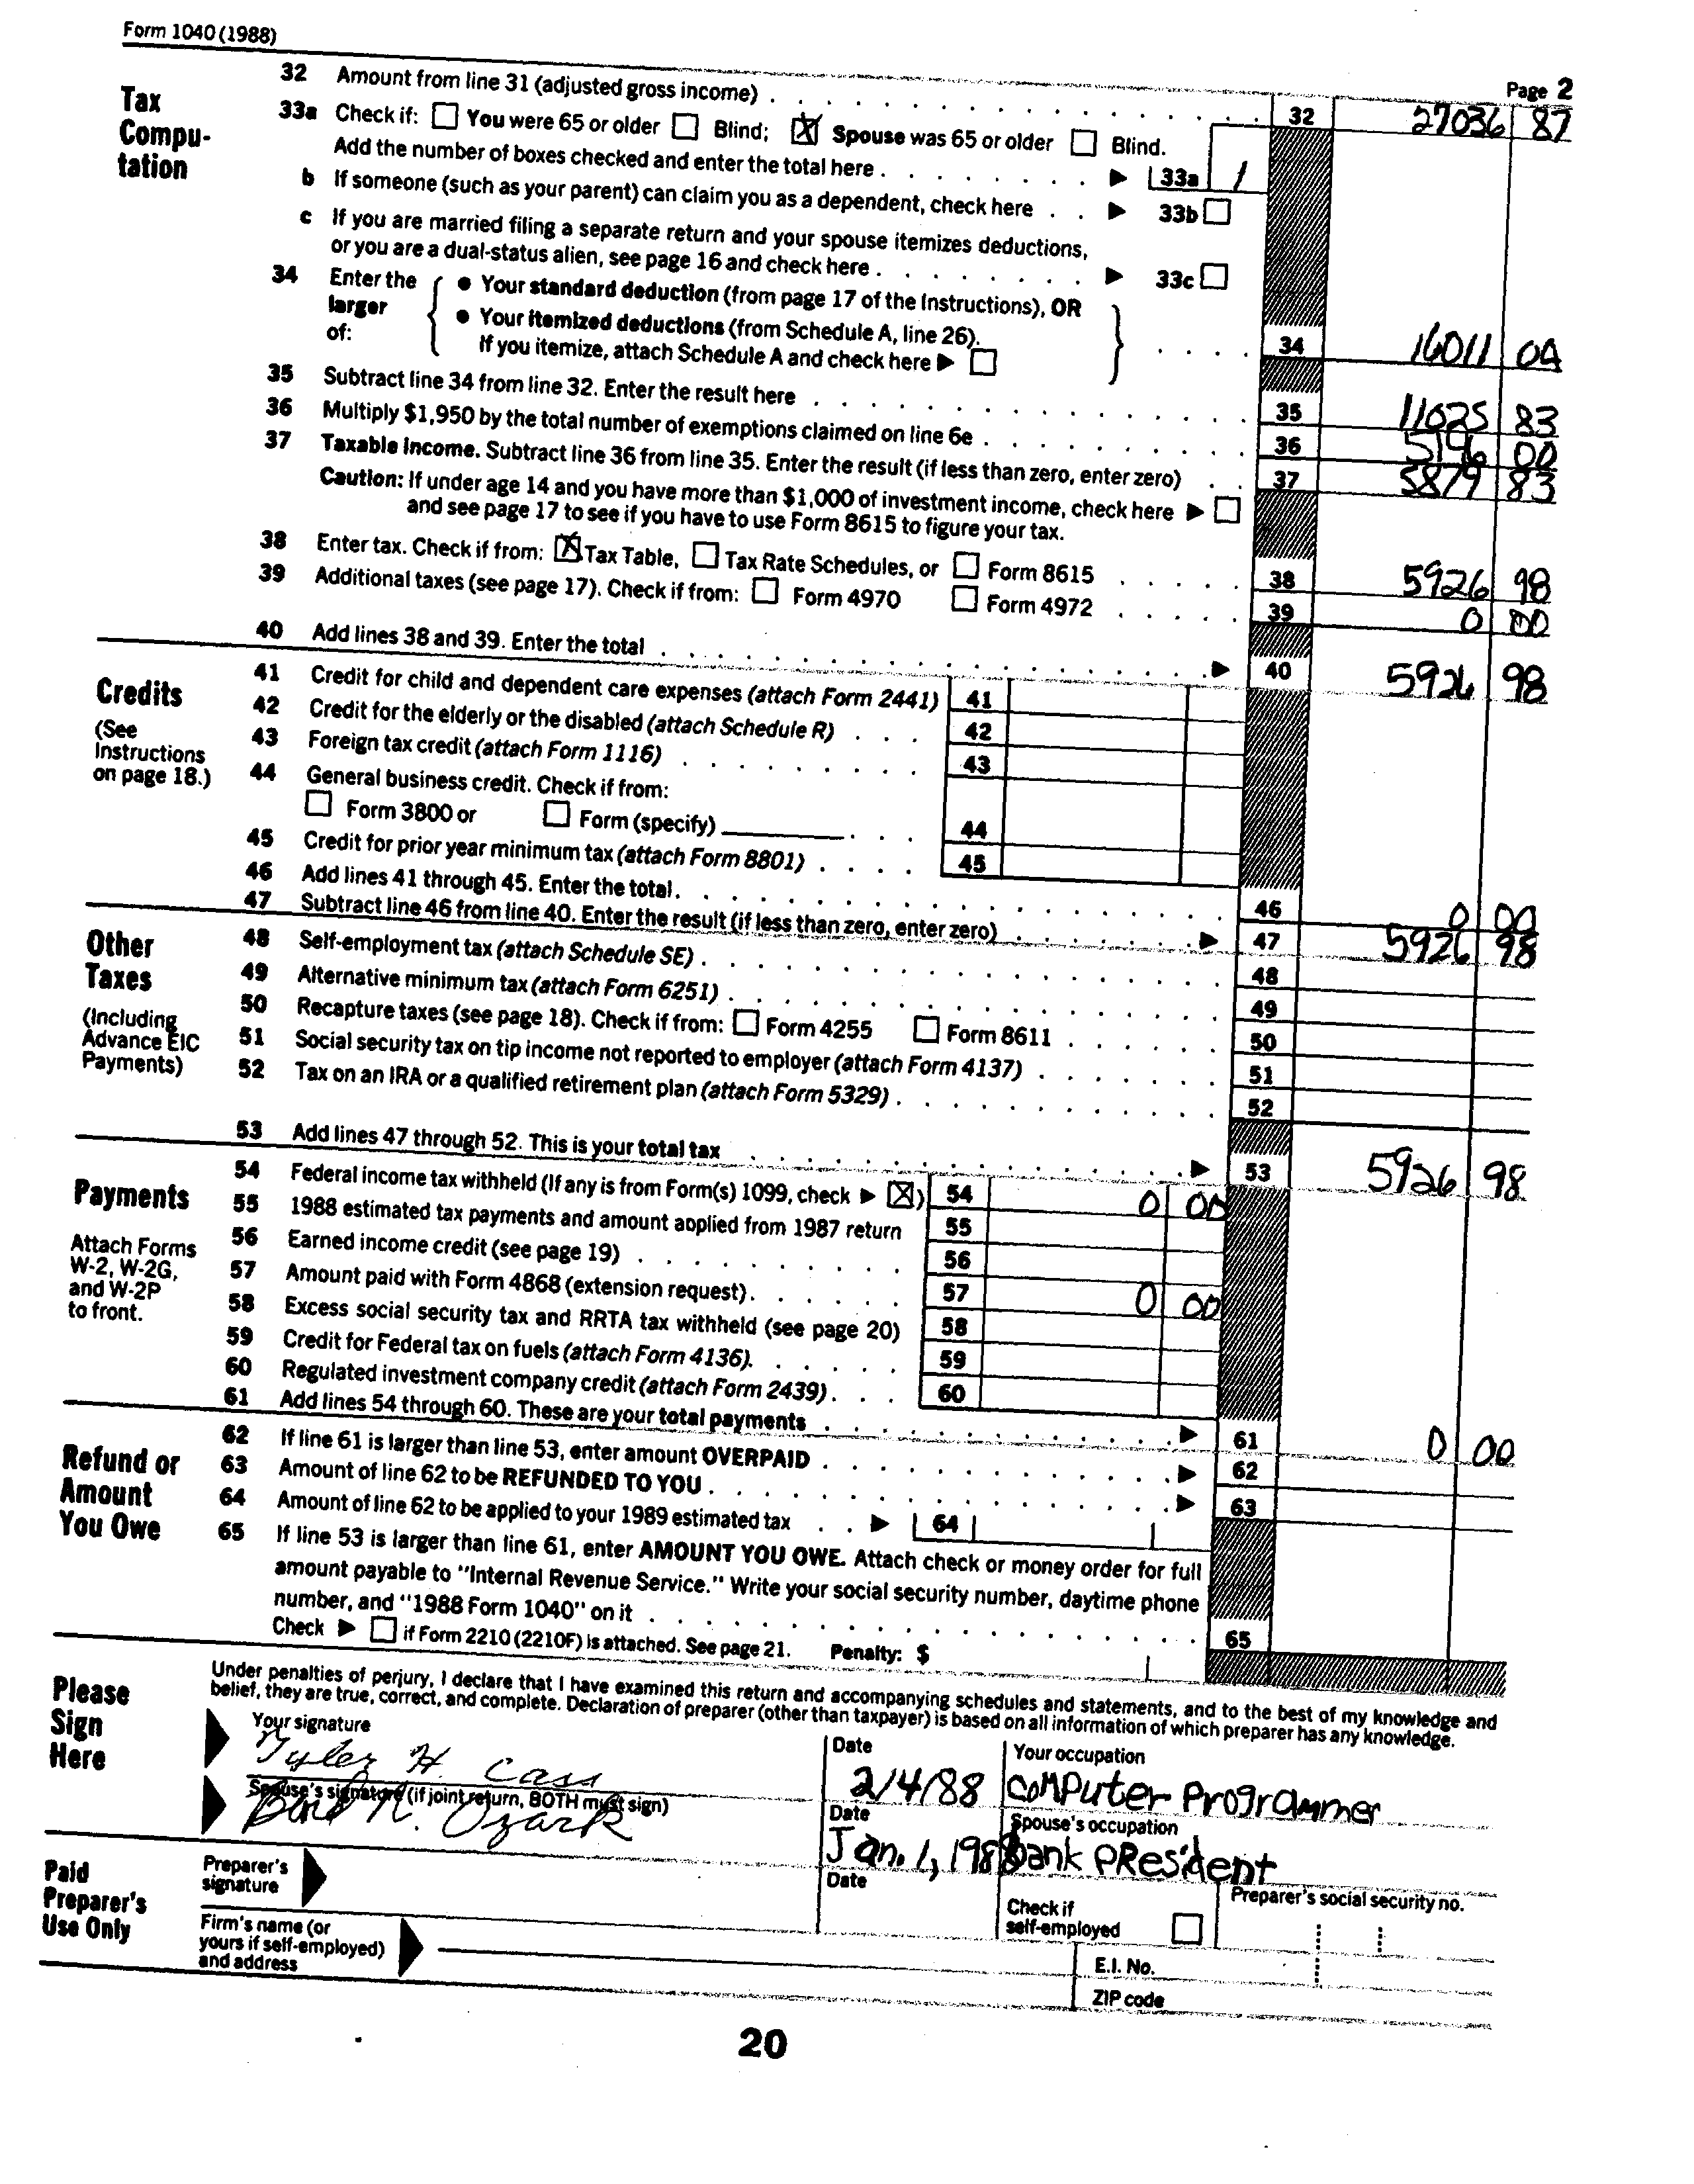 Form 1040 (1988)
Page 2
Tax Compu-tation
32 Amount from line 31 (adjusted gross income) 32 27036 87
33a Check if: ☐ You were 65 or older ☐ Blind; ☒ Spouse was 65 or older ☐ Blind.
Add the number of boxes checked and enter the total here ▶ 33a 1
b If someone (such as your parent) can claim you as a dependent, check here ▶ 33b ☐
c If you are married filing a separate return and your spouse itemizes deductions,
or you are a dual-status alien, see page 16 and check here ▶ 33c ☐
34 Enter the larger of:
● Your standard deduction (from page 17 of the Instructions), OR
● Your itemized deductions (from Schedule A, line 26).
If you itemize, attach Schedule A and check here ▶ ☐
34 16011 04
35 Subtract line 34 from line 32. Enter the result here 35 11025 83
36 Multiply $1,950 by the total number of exemptions claimed on line 6e 36 5146 00
37 Taxable income. Subtract line 36 from line 35. Enter the result (if less than zero, enter zero) 37 5879 83
Caution: If under age 14 and you have more than $1,000 of investment income, check here ▶ ☐
and see page 17 to see if you have to use Form 8615 to figure your tax.
38 Enter tax. Check if from: ☒ Tax Table, ☐ Tax Rate Schedules, or ☐ Form 8615 38 5926 98
39 Additional taxes (see page 17). Check if from: ☐ Form 4970 ☐ Form 4972 39 0 00
40 Add lines 38 and 39. Enter the total ▶ 40 5926 98
Credits
(See Instructions on page 18.)
41 Credit for child and dependent care expenses (attach Form 2441) 41
42 Credit for the elderly or the disabled (attach Schedule R) 42
43 Foreign tax credit (attach Form 1116) 43
44 General business credit. Check if from:
☐ Form 3800 or ☐ Form (specify) 44
45 Credit for prior year minimum tax (attach Form 8801) 45
46 Add lines 41 through 45. Enter the total. 46 0 00
47 Subtract line 46 from line 40. Enter the result (if less than zero, enter zero) ▶ 47 5926 98
Other Taxes
(Including Advance EIC Payments)
48 Self-employment tax (attach Schedule SE) 48
49 Alternative minimum tax (attach Form 6251) 49
50 Recapture taxes (see page 18). Check if from: ☐ Form 4255 ☐ Form 8611 50
51 Social security tax on tip income not reported to employer (attach Form 4137) 51
52 Tax on an IRA or a qualified retirement plan (attach Form 5329) 52
53 Add lines 47 through 52. This is your total tax ▶ 53 5926 98
Payments
Attach Forms W-2, W-2G, and W-2P to front.
54 Federal income tax withheld (If any is from Form(s) 1099, check ▶ ☒) 54 0 00
55 1988 estimated tax payments and amount applied from 1987 return 55
56 Earned income credit (see page 19) 56
57 Amount paid with Form 4868 (extension request) 57 0 00
58 Excess social security tax and RRTA tax withheld (see page 20) 58
59 Credit for Federal tax on fuels (attach Form 4136). 59
60 Regulated investment company credit (attach Form 2439) 60
61 Add lines 54 through 60. These are your total payments ▶ 61 0 00
Refund or Amount You Owe
62 If line 61 is larger than line 53, enter amount OVERPAID ▶ 62
63 Amount of line 62 to be REFUNDED TO YOU ▶ 63
64 Amount of line 62 to be applied to your 1989 estimated tax ▶ 64
65 If line 53 is larger than line 61, enter AMOUNT YOU OWE. Attach check or money order for full
amount payable to "Internal Revenue Service." Write your social security number, daytime phone
number, and "1988 Form 1040" on it 65
Check ▶ ☐ if Form 2210 (2210F) is attached. See page 21. Penalty: $
Please Sign Here
Under penalties of perjury, I declare that I have examined this return and accompanying schedules and statements, and to the best of my knowledge and
belief, they are true, correct, and complete. Declaration of preparer (other than taxpayer) is based on all information of which preparer has any knowledge.
Your signature Date Your occupation
Tyler H. Cass 2/4/88 Computer Programmer
Spouse's signature (if joint return, BOTH must sign) Date Spouse's occupation
N. Ozark Jan. 1, 1988 bank PResident
Paid Preparer's Use Only
Preparer's signature Date Check if self-employed ☐ Preparer's social security no.
Firm's name (or yours if self-employed) and address
E.I. No.
ZIP code
20